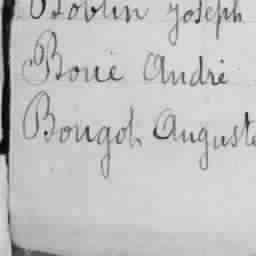 Boblin Joseph
Boué André
Bougot Auguste